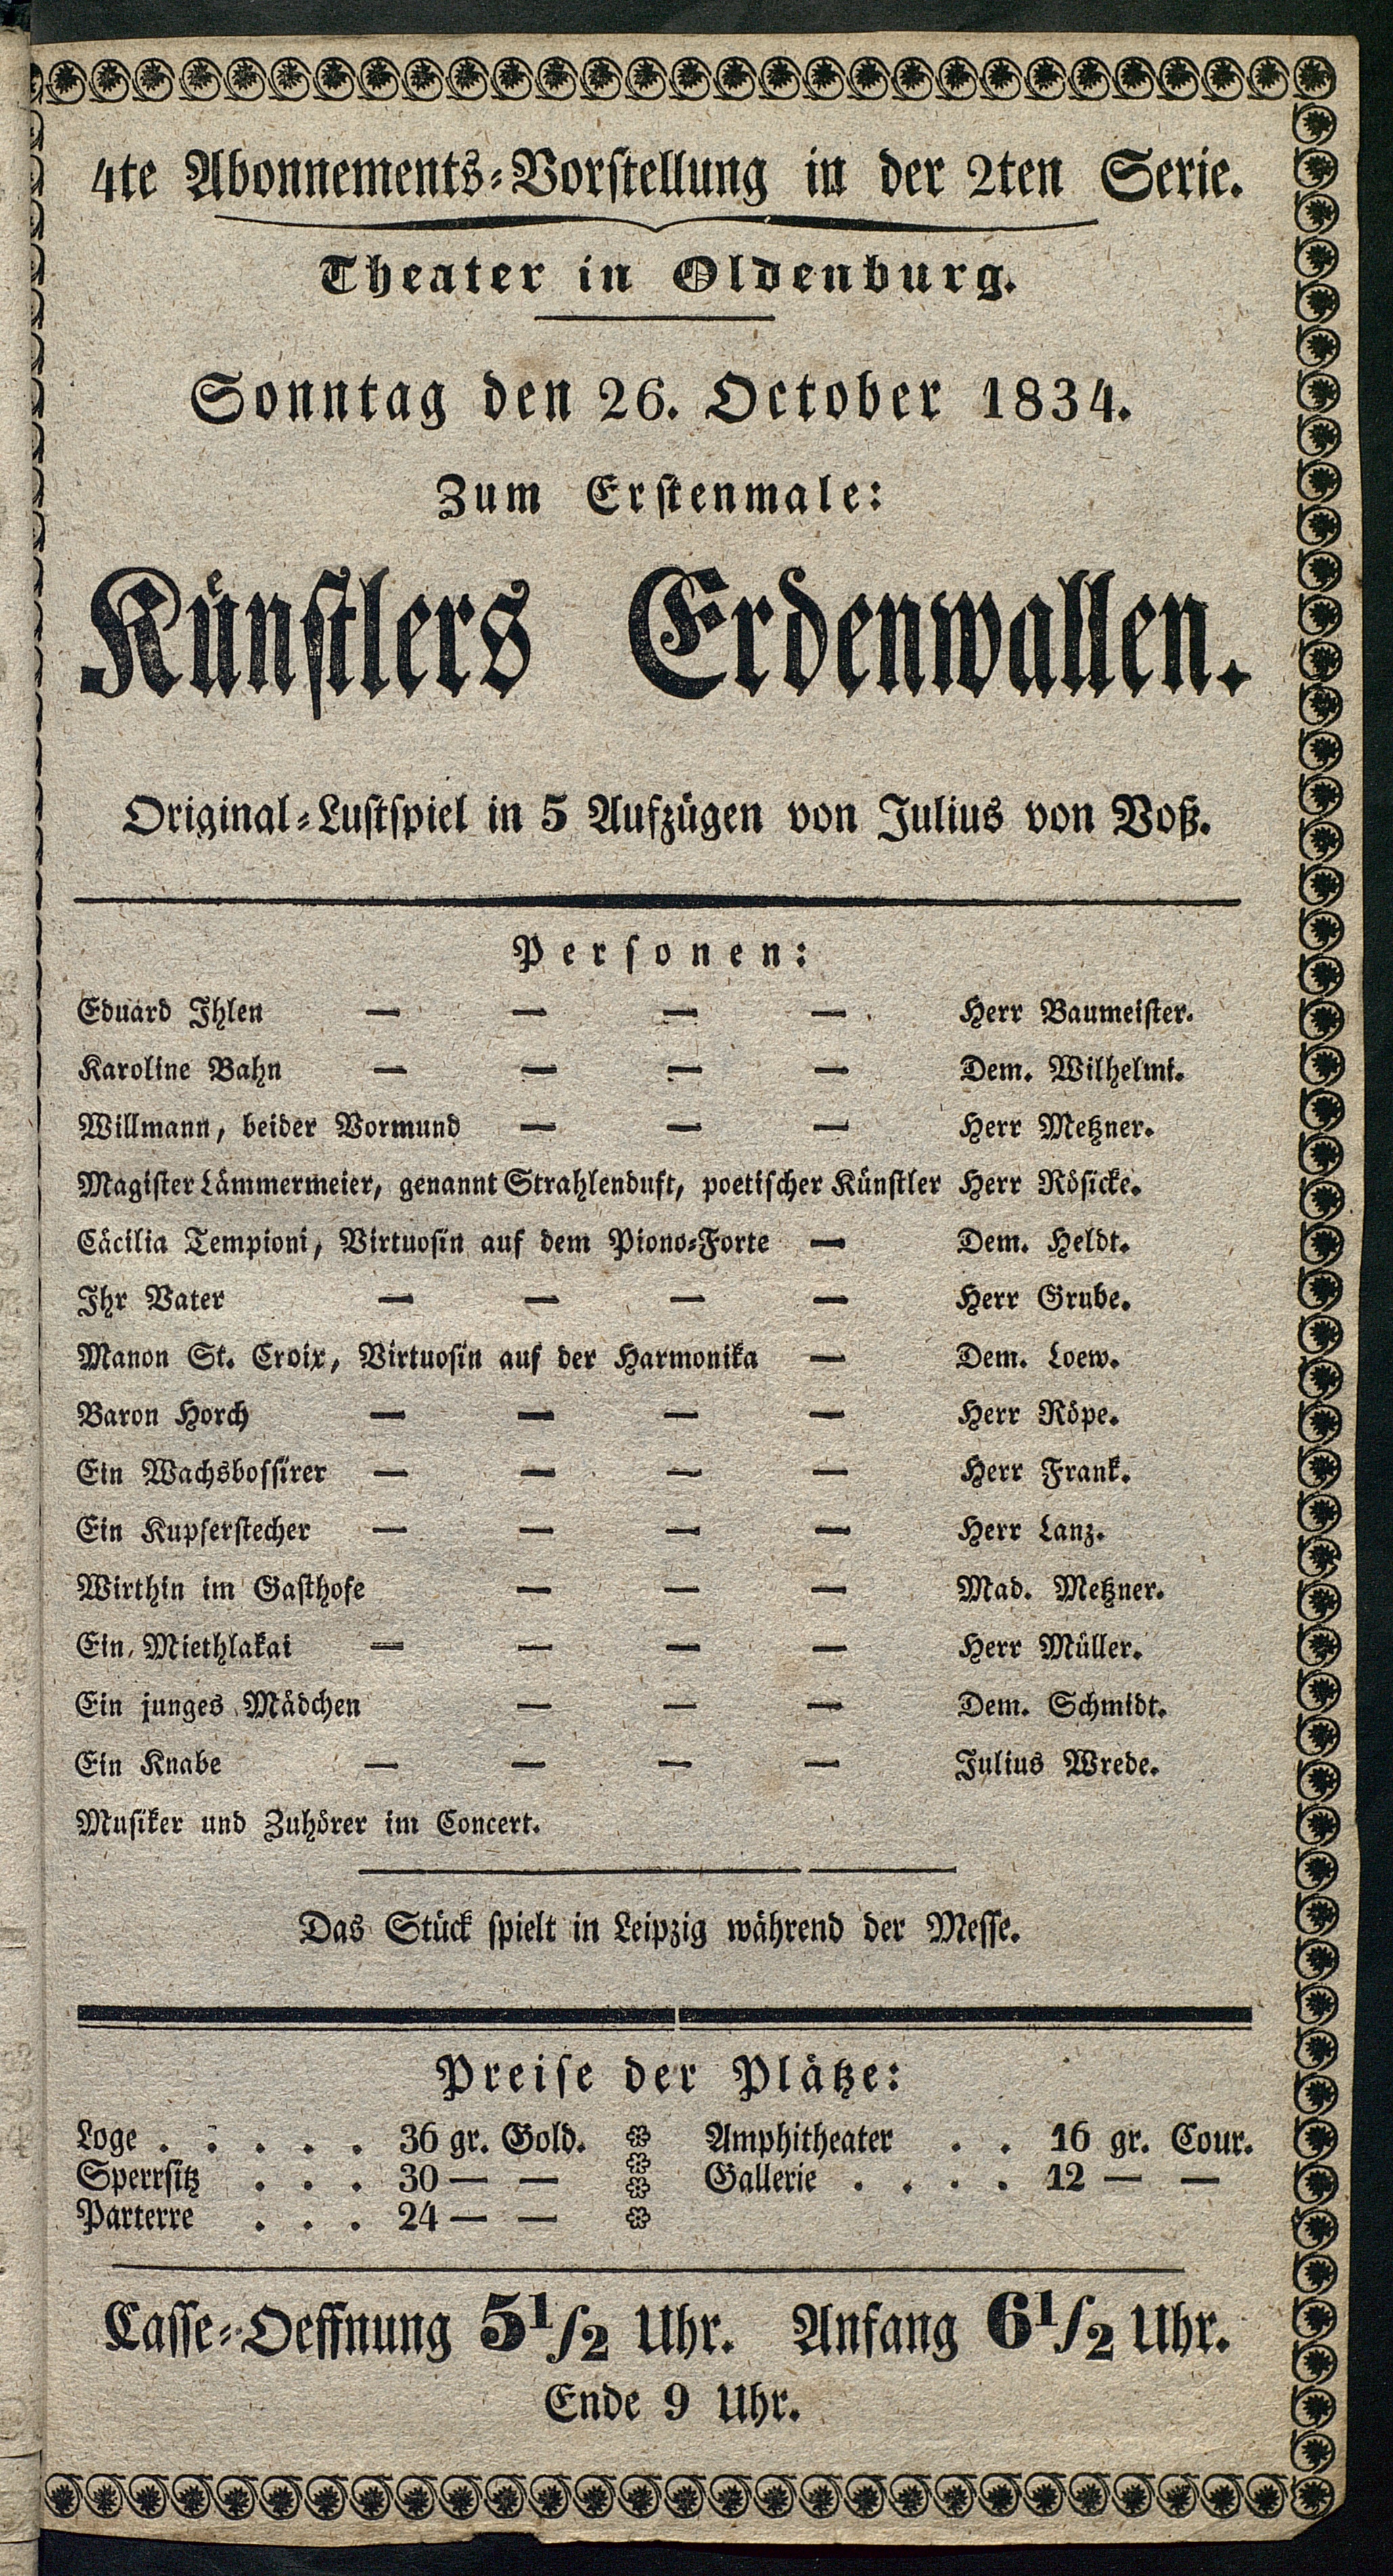 4te Abonnements-Vorstellung in der 2ten Serie.
Theater in Oldenburg.
Sonntag den 26. October 1834.
Zum Erstenmale:
Künstlers Erdenwallen.
Original-Lustspiel in 5 Aufzügen von Julius von Voß.
Personen:
Eduard Ihlen — — — — Herr Baumeister.
Karoline Bahn — — — — Dem. Wilhelmi.
Willmann, beider Vormund — — — Herr Metzner.
Magister Lämmermeier, genannt Strahlenduft, poetischer Künstler Herr Rösicke.
Cäcilia Tempioni, Virtuosin auf dem Piono-Forte — Dem. Heldt.
Ihr Vater — — — — Herr Grube.
Manon St. Croix, Virtuosin auf der Harmonika — Dem. Loew.
Baron Horch — — — — Herr Röpe.
Ein Wachsbossirer — — — — Herr Frank.
Ein Kupferstecher — — — — Herr Lanz.
Wirthin im Gasthofe — — — Mad. Metzner.
Ein Miethlakai — — — — Herr Müller.
Ein junges Mädchen — — — Dem. Schmidt.
Ein Knabe — — — — Julius Wrede.
Musiker und Zuhörer im Concert.
Das Stück spielt in Leipzig während der Messe.
Preise der Plätze:
Loge . . . . . 36 gr. Gold.
Sperrsitz . . . 30 — —
Parterre . . . 24 — —
Amphitheater . . 16 gr. Cour.
Gallerie . . . . 12 — —
Casse-Oeffnung 5 1/2 Uhr. Anfang 6 1/2 Uhr.
Ende 9 Uhr.